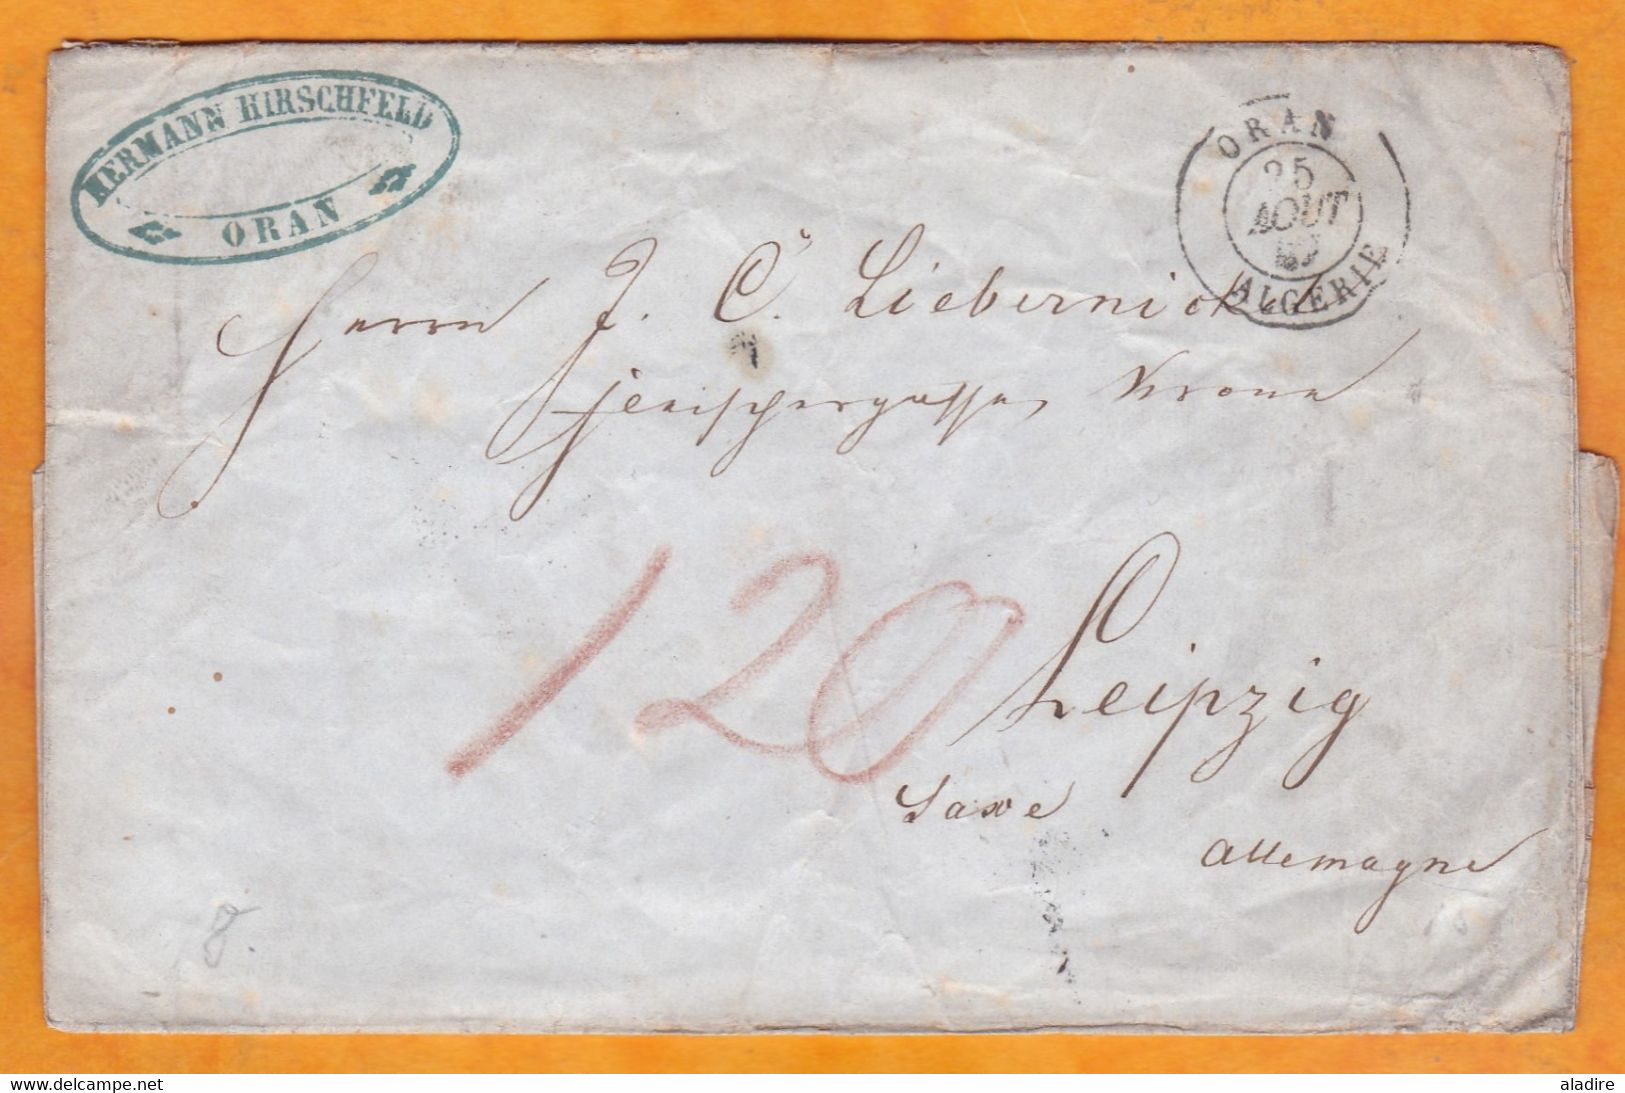 HERMANN HIRSCHFELD
ORAN
ORAN
25
AOUT
ALGERIE
Herrn J. C. Liebernickel
Krone
120
Leipzig
Saxe
Allemagne
8.
aladire